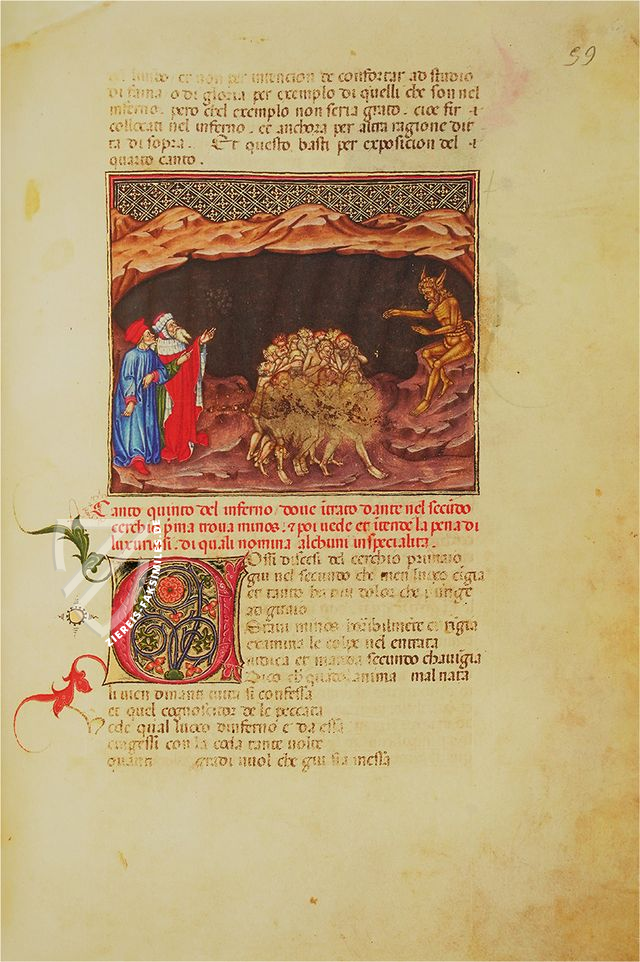 59
et non per intencion de confortar ad studio
di fama o di gloria per exemplo di quelli che son nel
inferno . pero chel exemplo non seria grato . cioe fir
collocati nel inferno . et anchora per altra ragione dit
ta di sopra . Et questo basti per exposicion del
quarto canto .
Canto quinto del inferno . doue itrato dante nel secundo
cerchio pma troua minos . & poi uede et itende la pena di
luxuriosi . di quali nomina alchuni in specialita .
Ossi discesi del cerchio primaio
giu nel secundo che men luoco cigia
et tanto piu dolor che
ad guaio
Staui minos horibilmente et rigia
examina le colpe nel entrata
iudica et manda secundo chauigia
Dico che quando anima mal nata
li uien dinanti tutta si confessa
et quel cognoscitor de le peccata
uede qual luoco dinferno e da essa
cingessi con la coda tante uolte
gradi uuol che giu sia messa
ZIEREIS FAKSIMILES